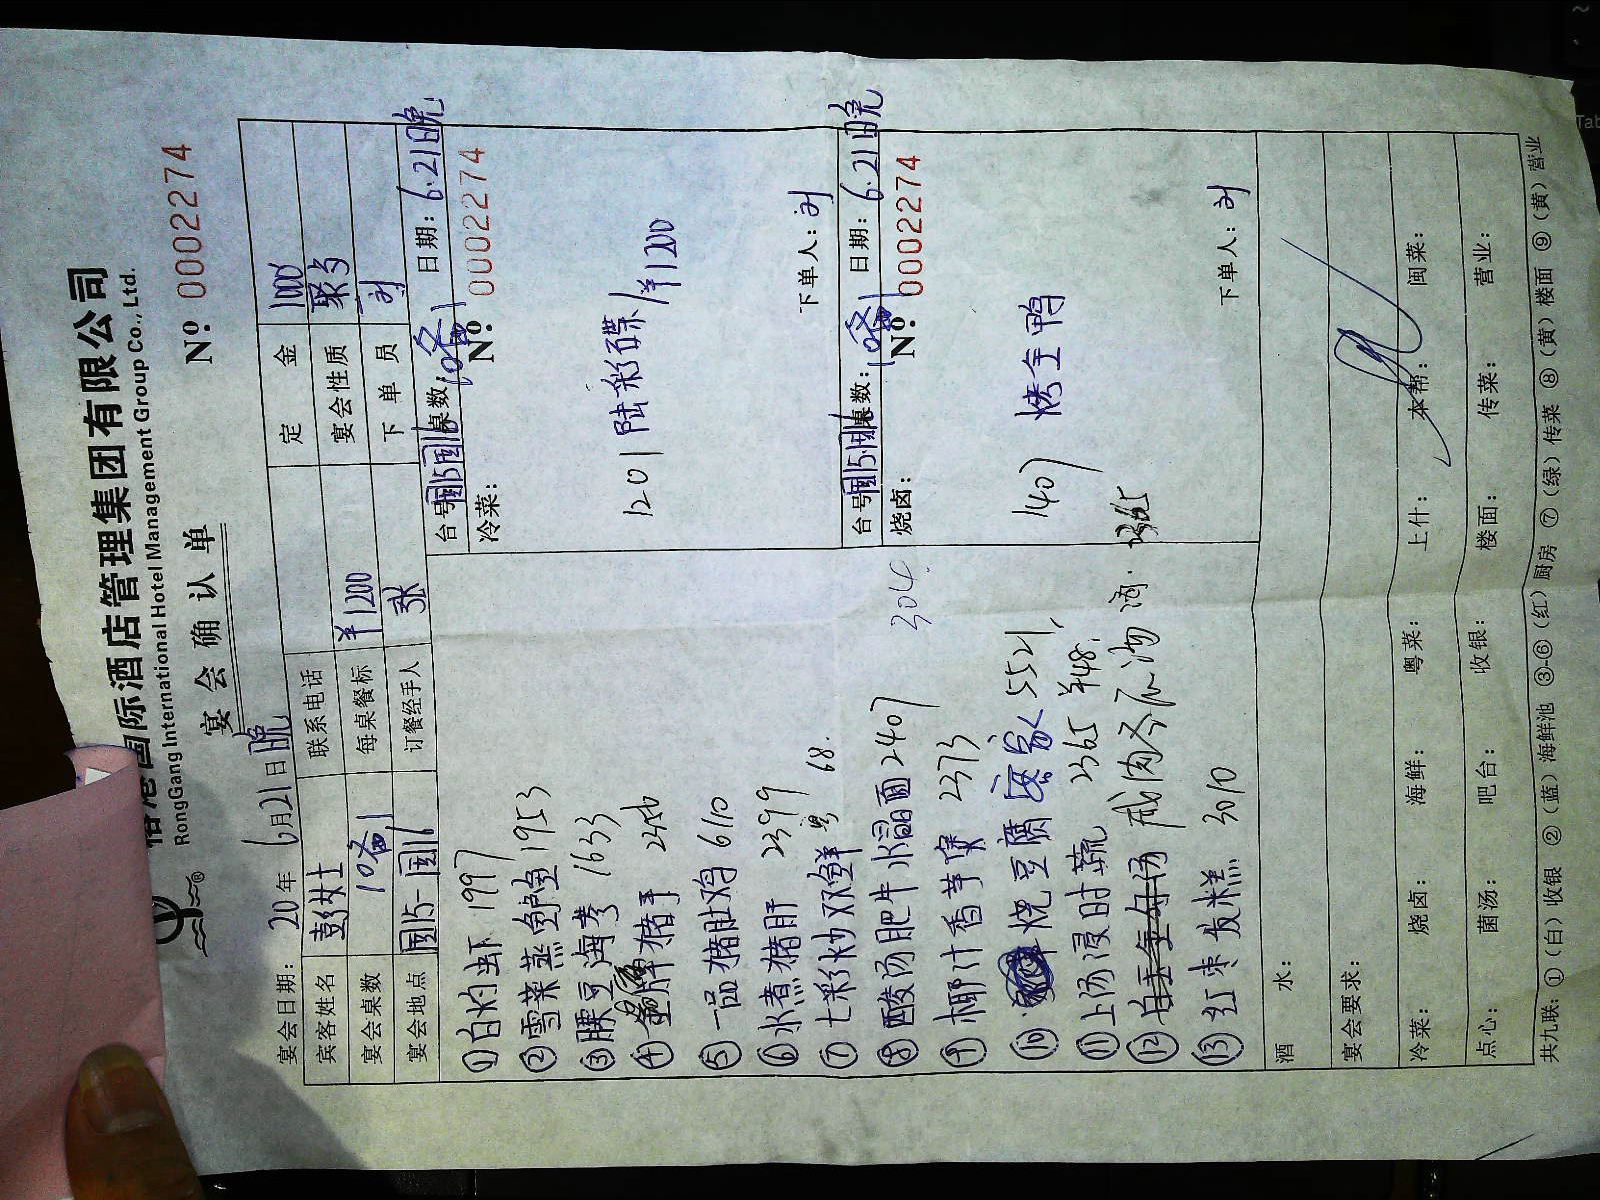 国际酒店管理集团有限公司
RongGang International Hotel Management Group Co., Ltd.
宴会确认单
№ 0002274
宴会日期： 20 年 6月21日晚
宾客姓名 联系电话 定金 1000
宴会桌数 10备1 每桌餐标 ¥1200 宴会性质
宴会地点 订餐经手人 张 下单员
台号 桌数： 10备1 日期：6.21晚
冷菜： № 0002274
1201 陆彩碟 ¥1200
下单人：
台号 桌数： 10备1 日期：6.21晚
烧卤： № 0002274
1407 烤全鸭
下单人：
① 白灼虾 1997
② 雪菜蒸鲍鱼 1953
③ 腰豆海参 1633
④ 猪手
⑤ 一品猪肚鸡 6110
⑥ 水煮猪肝 2399
⑦ 七彩炒双鲜 68.
⑧ 酸汤肥牛水晶面 2407 304
⑨ 椰汁香芋煲 2373
⑩ 烧豆腐 5521
⑪ 上汤浸时蔬 2365 ¥48.
⑫
⑬ 红枣发糕 3010
酒水：
宴会要求：
冷菜： 烧卤： 海鲜： 粤菜： 上什： 本帮： 闽菜：
点心： 菌汤： 吧台： 收银： 楼面： 传菜： 营业：
共九联：①（白）收银 ②（蓝）海鲜池 ③-⑥（红）厨房 ⑦（绿）传菜 ⑧（黄）楼面 ⑨（黄）营业